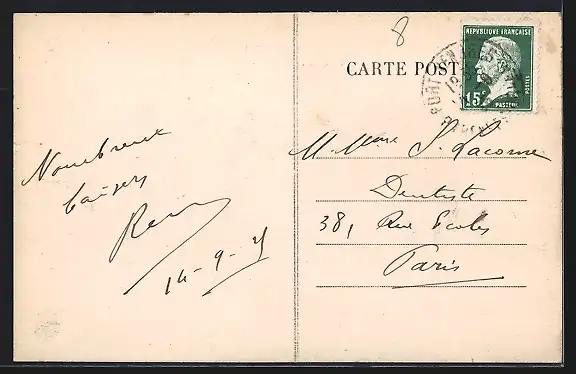 8
CARTE POST
REPUBLIQUE FRANÇAISE
15c
POSTES
PASTEUR
Nombreux
baisers
René
14-9-25
M. Mme P. Lacome
Dentiste
38, Rue Ecoles
Paris